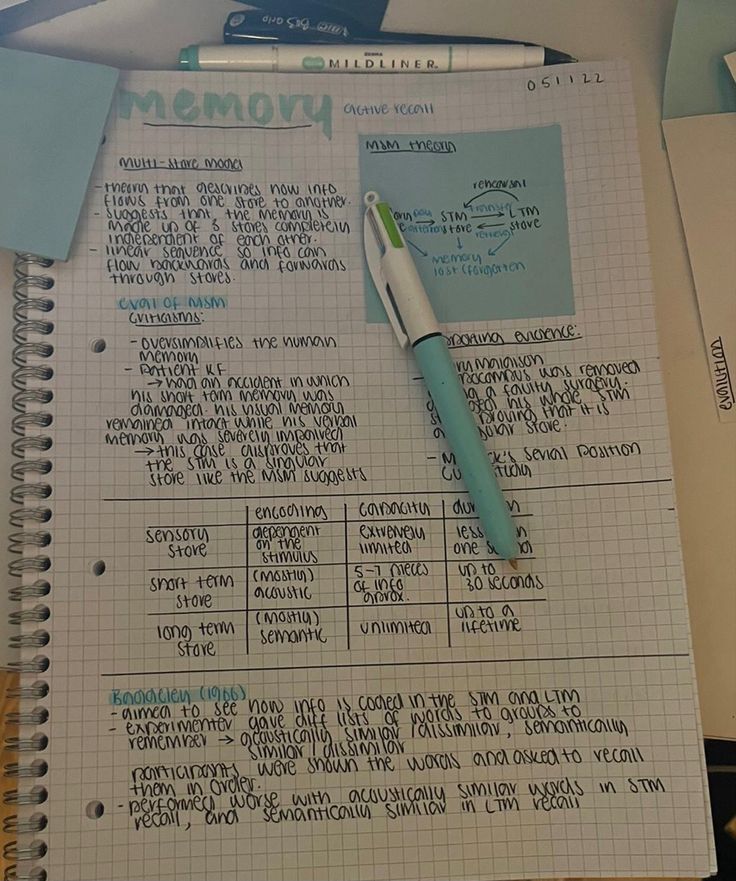 BIC Grip
ZEBRA MILDLINER.
051122
memory active recall
multi-store model
-theory that describes how info
flows from one store to another.
- suggests that the memory is
made up of 3 stores completely
independent of each other.
- linear sequence so info can
flow backwards and forwards
through stores.
MSM theory
rehearsal
STM transfer LTM
store retrieval store
memory
lost / forgotten
eval of MSM
criticisms:
- oversimplifies the human
memory
- patient KF
→ had an accident in which
his short term memory was
damaged. his visual memory
remained intact while his verbal
memory was severely impaired
→ this case disproves that
the STM is a singular
store like the MSM suggests
evidence:
was removed
a faulty surgery.
his whole STM
proving that it is
store.
- serial position
encoding capacity
sensory store dependent on the stimulus extremely limited one
short term store (mostly) acoustic 5-7 pieces of info aprox. up to 30 seconds
long term store (mostly) semantic unlimited up to a lifetime
Baddeley (1966)
- aimed to see how info is coded in the STM and LTM
- experimenter gave diff lists of words to groups to
remember → acoustically similar / dissimilar, semantically
similar / dissimilar
participants were shown the words and asked to recall
them in order.
- performed worse with acoustically similar words in STM
recall, and semantically similar in LTM recall
evalution